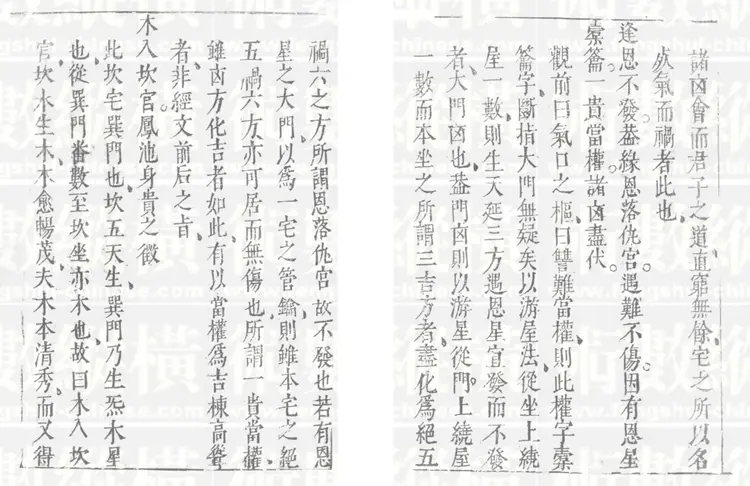 諸凶會而君子之道直窮無餘宅之所以名
處氣而禍者此也
逢恩不發葢緣恩落仇宮遇難不傷因有恩星
橐籥一貴當權諸凶盡伏
觀前曰氣口之樞曰讐難當權則此權字橐
籥字斷指大門無疑矣以游星法從坐上繞
屋一數則生天延三方遇恩星宜發而不發
者大門凶也葢門凶則以游星從門上繞屋
一數而本坐之所謂三吉方者盡化爲絕五
禍六之方所謂恩落仇宮故不發也若有恩
星之大門以爲一宅之管鑰則雖本宅之絕
五禍六方亦可居而無傷也所謂一貴當權
雖凶方化吉者如此有以當權爲吉棟高聳
者非經文前后之旨
木入坎宮鳳池身貴之徵
此坎宅巽門也坎五天生巽門乃生炁木星
也從巽門畨數至坎坐亦木也故曰木入坎
宮坎水生木木愈暢茂夫木本清秀而又得